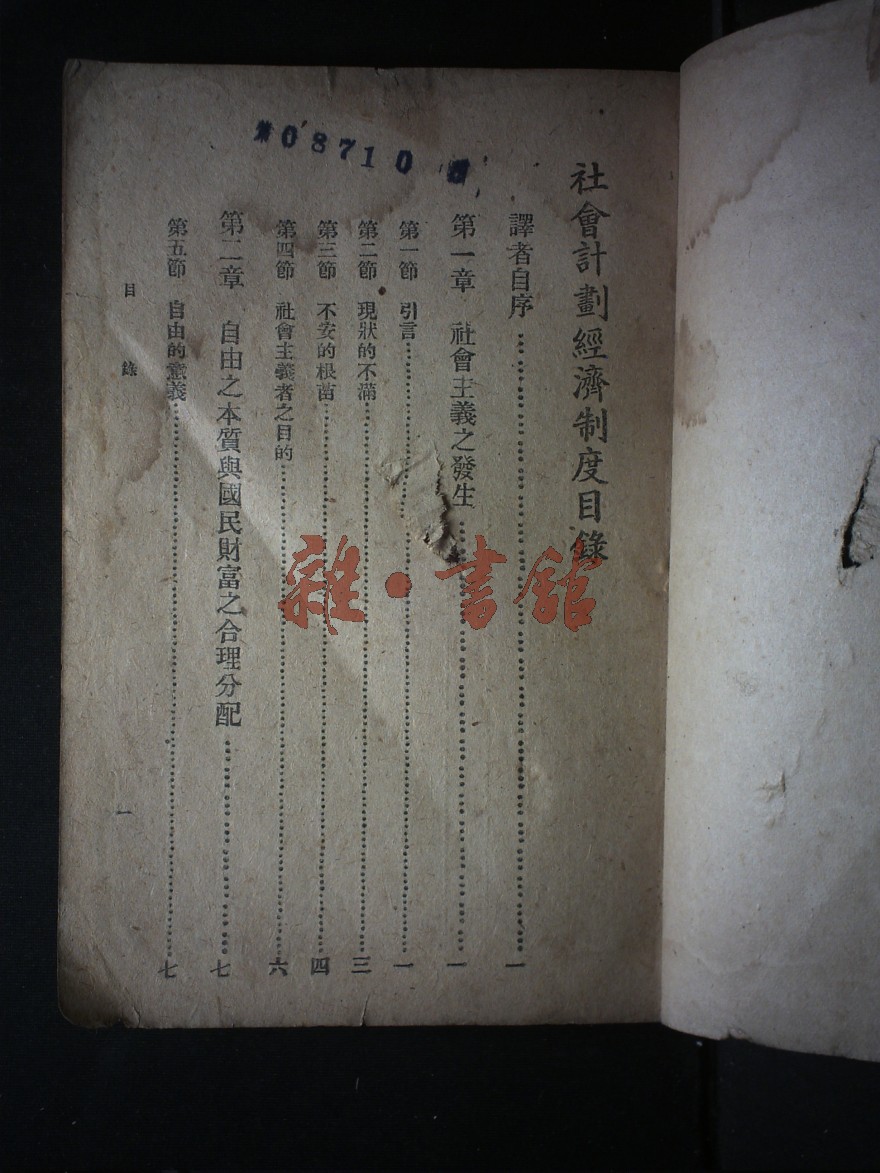 社會計劃經濟制度目錄
譯者自序……一
第一章　社會主義之發生……一
第一節　引言……一
第二節　現狀的不滿……三
第三節　不安的根苗……四
第四節　社會主義者之目的……六
第二章　自由之本質與國民財富之合理分配……七
第五節　自由的意義……七
目錄
一
08710
雜·書館